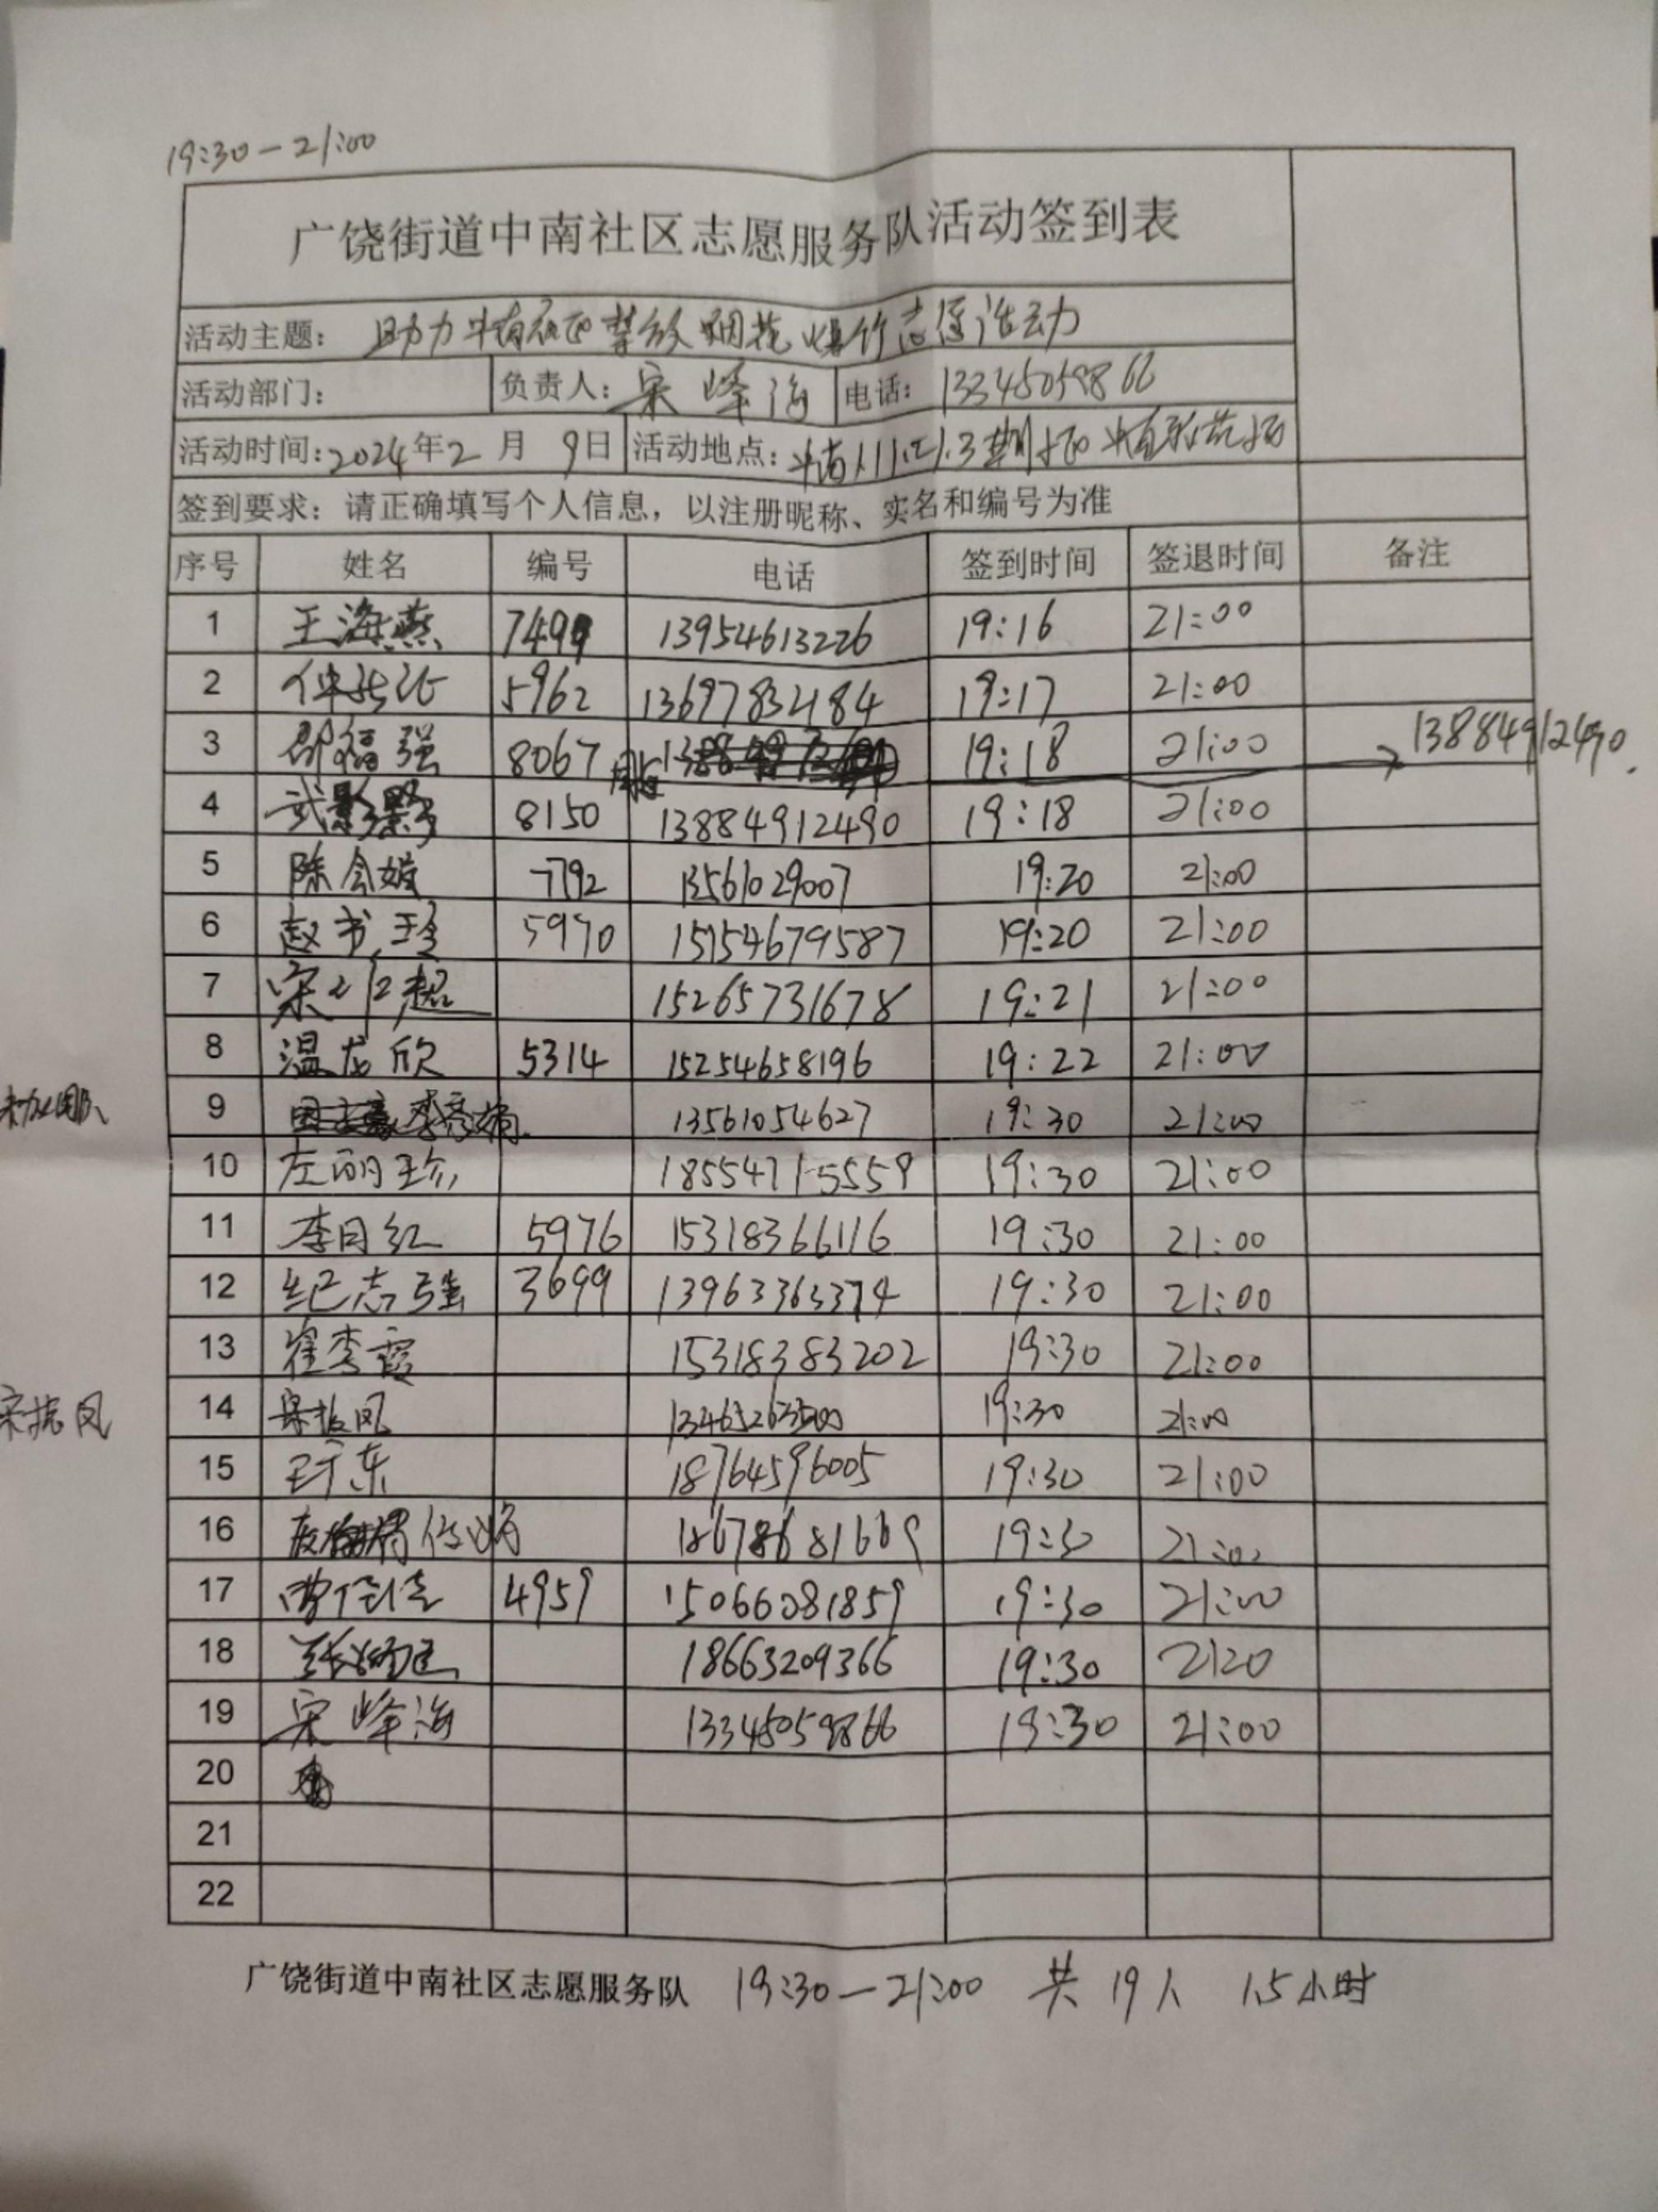 19:30-21:00
广饶街道中南社区志愿服务队活动签到表
活动主题: 助力中南社区禁放烟花爆竹志愿活动
活动部门: 负责人: 宋峰海 电话: 13345059866
活动时间: 2024年2月9日 活动地点:
签到要求: 请正确填写个人信息，以注册昵称、实名和编号为准
序号 姓名 编号 电话 签到时间 签退时间 备注
1 王海燕 7499 13954613226 19:16 21:00
2 5962 13697832184 19:17 21:00
3 邵福强 8067 19:18 21:00 13884912490.
4 武影影 8150 13884912490 19:18 21:00
5 陈会娥 7792 13561029007 19:20 21:00
6 赵书珍 5970 15154679587 19:20 21:00
7 宋 超 15265731678 19:21 21:00
8 温龙欣 5314 15254658196 19:22 21:00
未加团队 9 李秀娟. 13561054627 19:30 21:00
10 左丽珍 18554715559 19:30 21:00
11 李月红 5976 15318366116 19:30 21:00
12 纪志强 3699 13963363374 19:30 21:00
13 崔秀霞 15318383202 19:30 21:00
宋振凤 14 宋振凤 13465263500 19:30 21:00
15 王于东 18764596005 19:30 21:00
16 18678681669 19:30 21:00
17 曹 4959 15066081859 19:30 21:00
18 18663209366 19:30 2120
19 宋峰海 13345059866 19:30 21:00
20
21
22
广饶街道中南社区志愿服务队 19:30-21:00 共19人 1.5小时